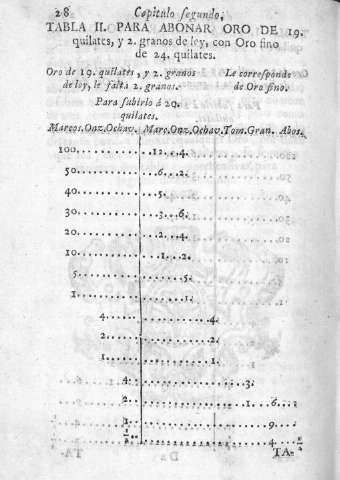 28 Capitulo segundo,
TABLA II. PARA ABONAR ORO DE 19.
quilates, y 2. granos de ley, con Oro fino
de 24. quilates.
Oro de 19. quilates, y 2. granos
de ley, le falta 2. granos.
Para subirlo á 20.
quilates.
Le corresponde
de Oro fino.
Marcos.Onz.Ochav. Marc.Onz.Ochav.Tom.Gran. Abos.
100..........12..4.
50..........6..2.
40..........5.
30..........3..6.
20..........2..4.
10..........1..2.
5..........5.
1..........1.
4..........4.
2..........2.
1..........1.
4..........3.
2..........1...6...
1..........9...
½..........4...½
TA-